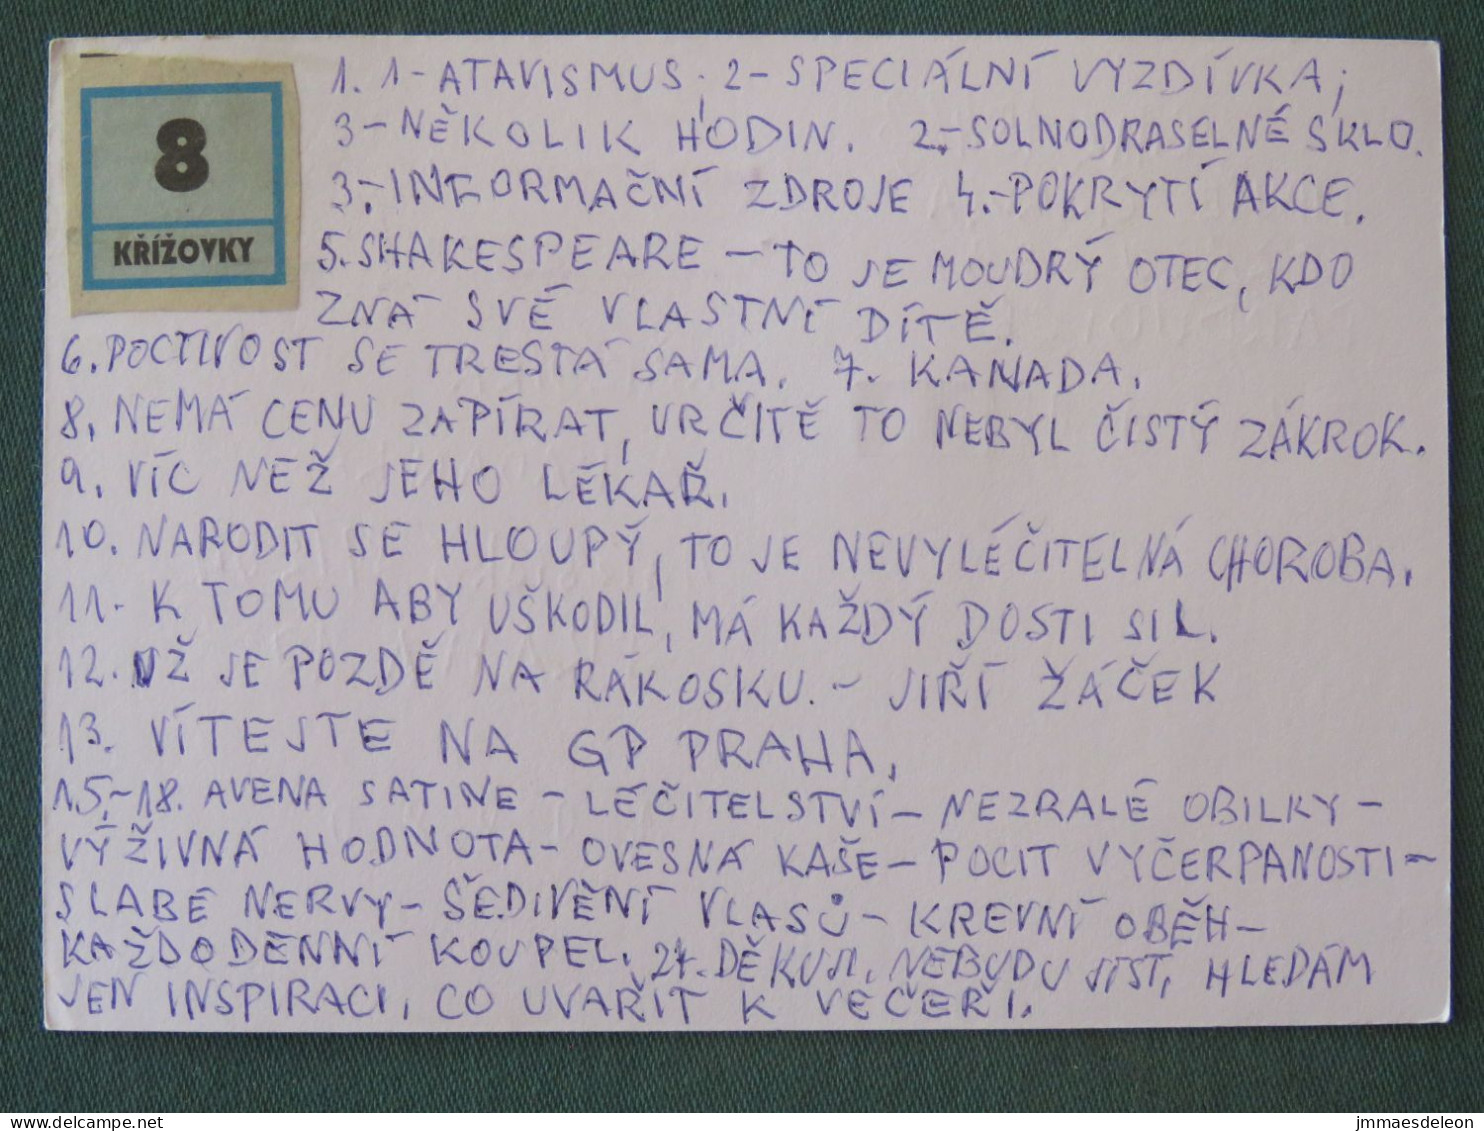 8
KŘÍŽOVKY
1. 1-ATAVISMUS; 2-SPECIÁLNÍ VYZDÍVKA;
3-NĚKOLIK HODIN. 2.-SOLNODRASELNÉ SKLO.
3.-INFORMAČNÍ ZDROJE 4.-POKRYTÍ AKCE.
5. SHAKESPEARE - TO JE MOUDRÝ OTEC, KDO
ZNÁ SVÉ VLASTNÍ DÍTĚ.
6. POCTIVOST SE TRESTÁ SAMA. 7. KANADA.
8, NEMÁ CENU ZAPÍRAT, URČITĚ TO NEBYL ČISTÝ ZÁKROK.
9. VÍC NEŽ JEHO LÉKAŘ.
10. NARODIT SE HLOUPÝ, TO JE NEVYLÉČITELNÁ CHOROBA.
11. K TOMU ABY UŠKODIL, MÁ KAŽDÝ DOSTI SIL.
12. UŽ JE POZDĚ NA RÁKOSKU. - JIŘÍ ŽÁČEK
13. VÍTEJTE NA GP PRAHA.
15-18. AVENA SATINE - LÉČITELSTVÍ - NEZRALÉ OBILKY -
VÝŽIVNÁ HODNOTA - OVESNÁ KAŠE - POCIT VYČERPANOSTI -
SLABÉ NERVY - ŠEDIVĚNÍ VLASŮ - KREVNÍ OBĚH -
KAŽDODENNÍ KOUPEL. 27. DĚKUJI, NEBUDU JÍST, HLEDÁM
JEN INSPIRACI, CO UVAŘIT K VEČEŘI.
delcampe.net
jmmaesdeleon